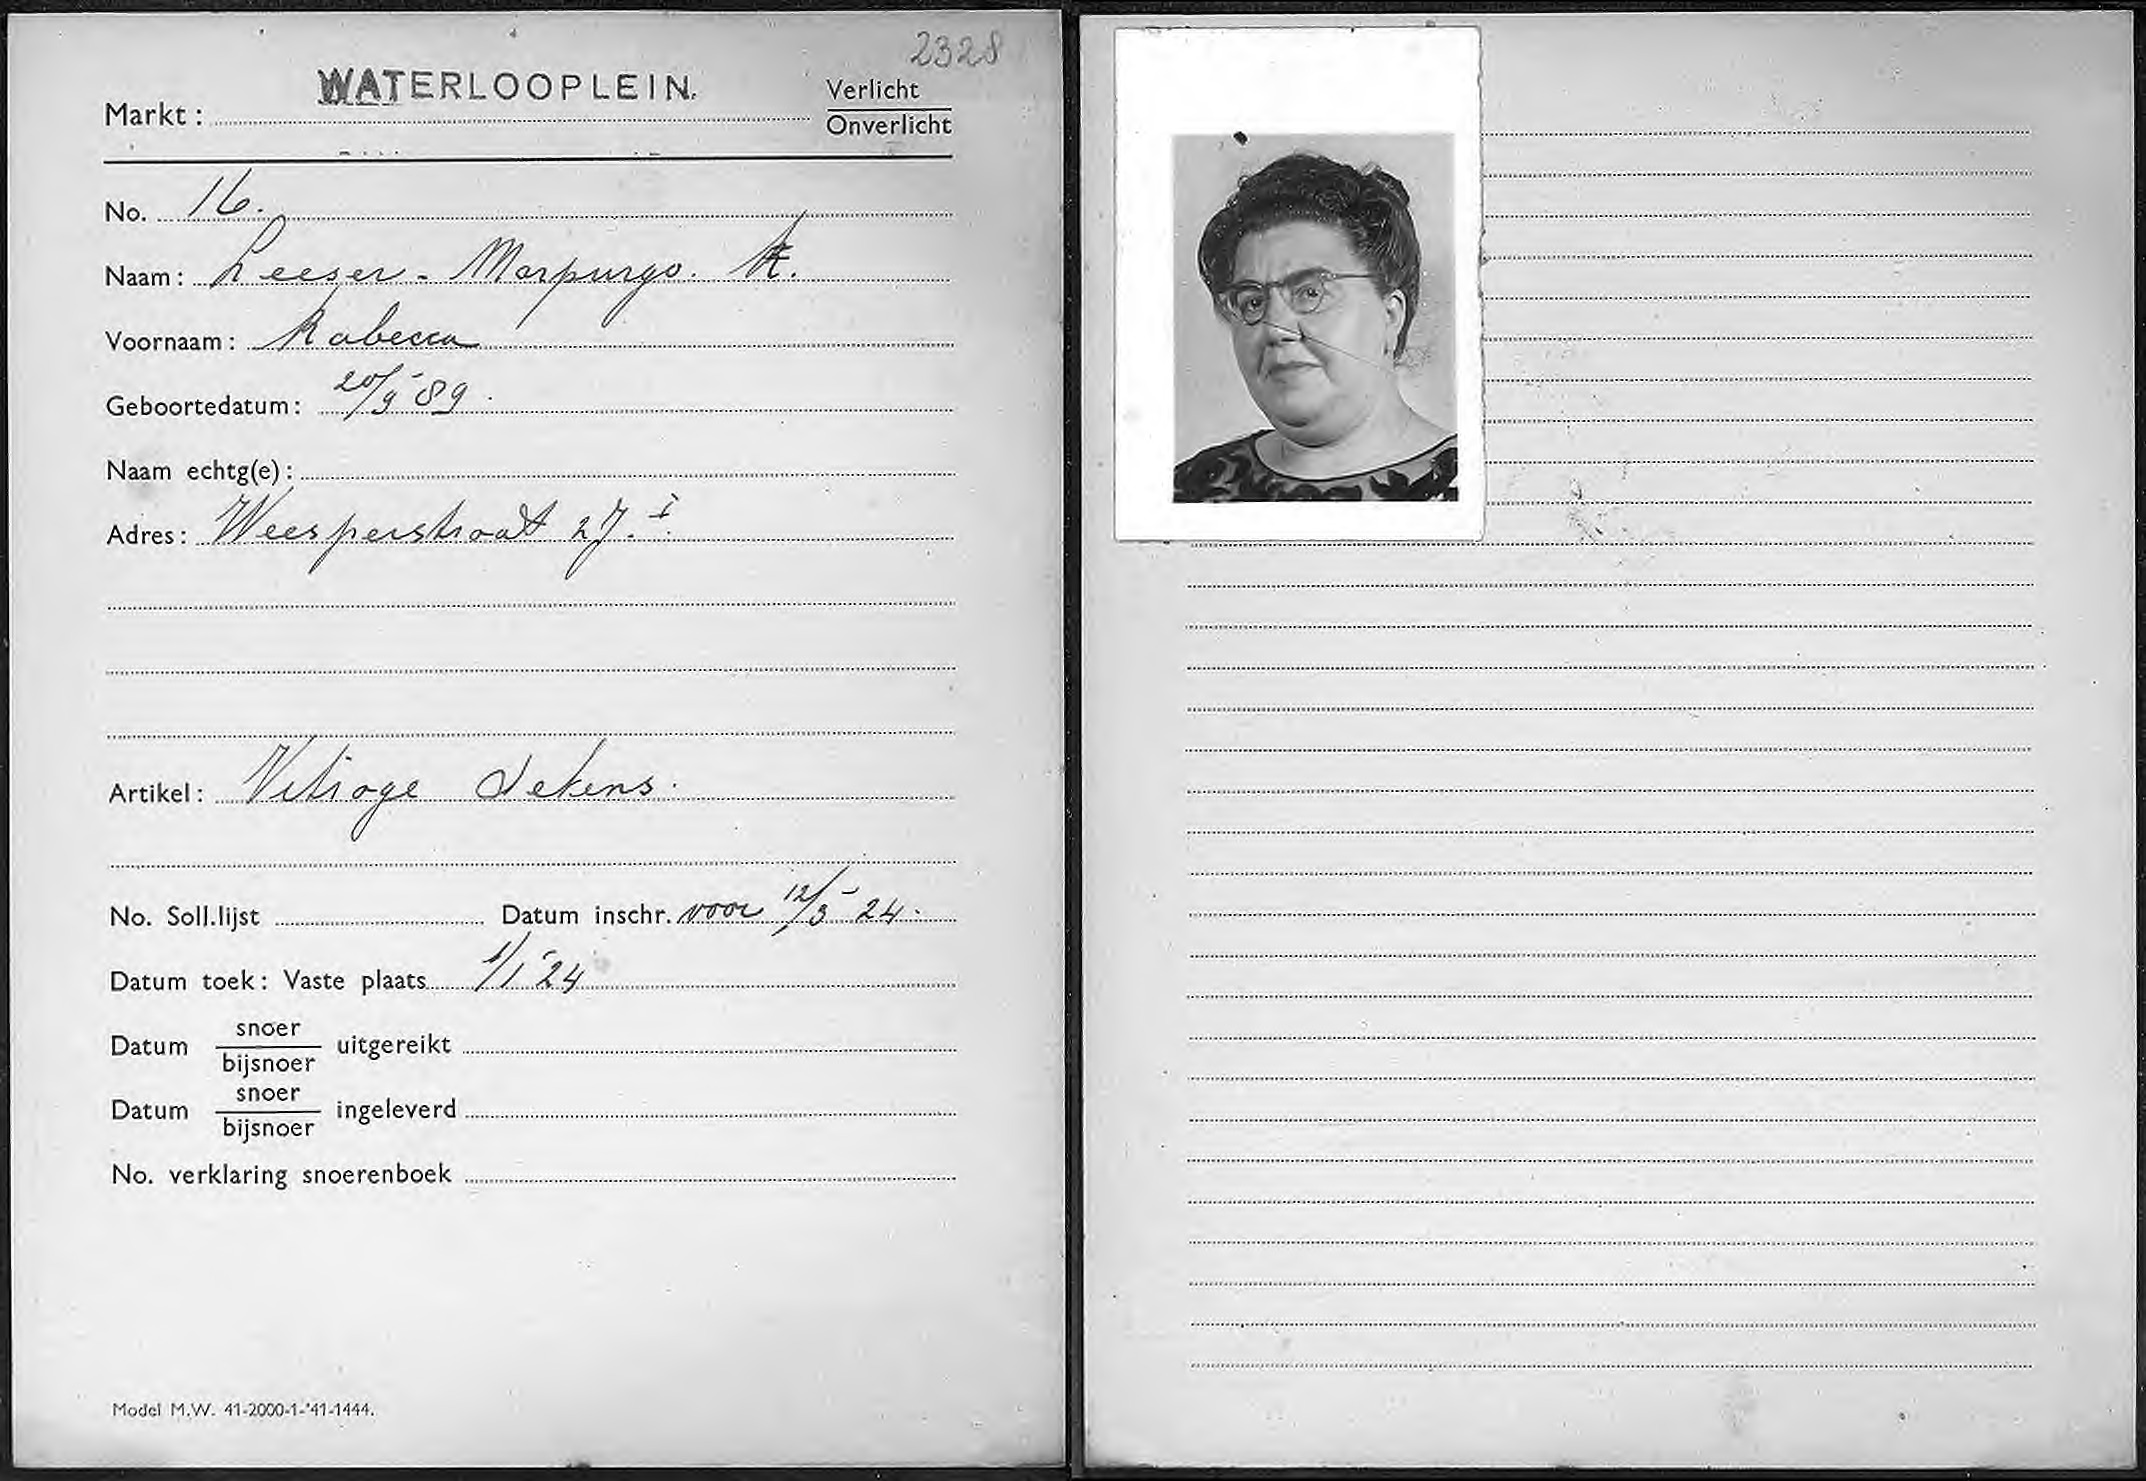 2328
Markt: WATERLOOPLEIN. Verlicht
Onverlicht
No. 16.
Naam: Leeser - Morpurgo. R.
Voornaam: Rabecca
Geboortedatum: 20/9 '89.
Naam echtg(e):
Adres: Weesperstraat 27. I
Artikel: Vitrage dekens.
No. Soll.lijst Datum inschr. voor 12/3 - 24.
Datum toek: Vaste plaats 1/1 '24
Datum snoer uitgereikt
bijsnoer
Datum snoer ingeleverd
bijsnoer
No. verklaring snoerenboek
Model M.W. 41-2000-1-'41-1444.